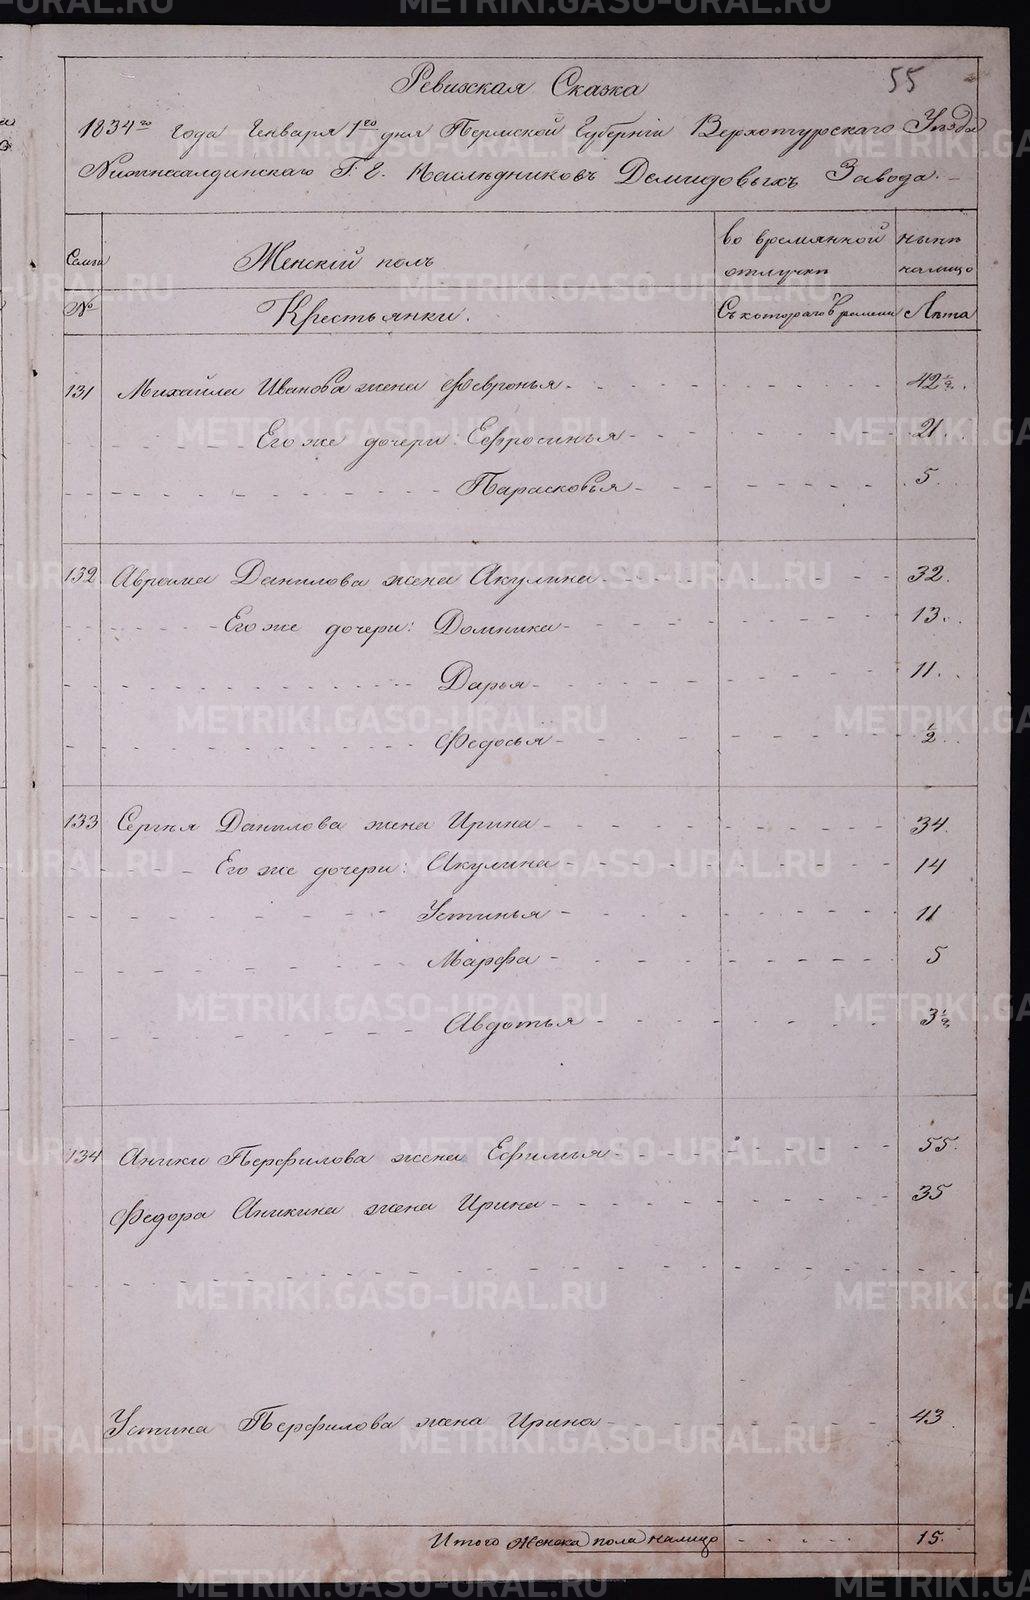 55
Ревизская Сказка
1834го года Генваря 1го дня Пермской Губернiи Верхотурскаго Уезда
Нижнесалдинскаго Г. Е. Наследниковъ Демидовыхъ Завода.
Семьи Женскiй полъ во времянной отлучке ныне налицо
№ Крестьянки. Съ котораго времени Лета
131 Михайла Иванова жена Февронья 42 1/2.
Его же дочери: Ефросинья 21.
Парасковья 5.
132 Аврама Данилова жена Акулина 32.
Его же дочери: Домника 13.
Дарья 11.
Федосья 1/2.
133 Сергея Данилова жена Ирина 34.
Его же дочери: Акулина 14
Устинья 11
Марфа 5
Авдотья 3 1/2
134 Аники Перфилова жена Ефимья 55.
Федора Аникина жена Ирина 35
Устина Перфилова жена Ирина 43
Итого женска пола налицо 15.
METRIKI.GASO-URAL.RU